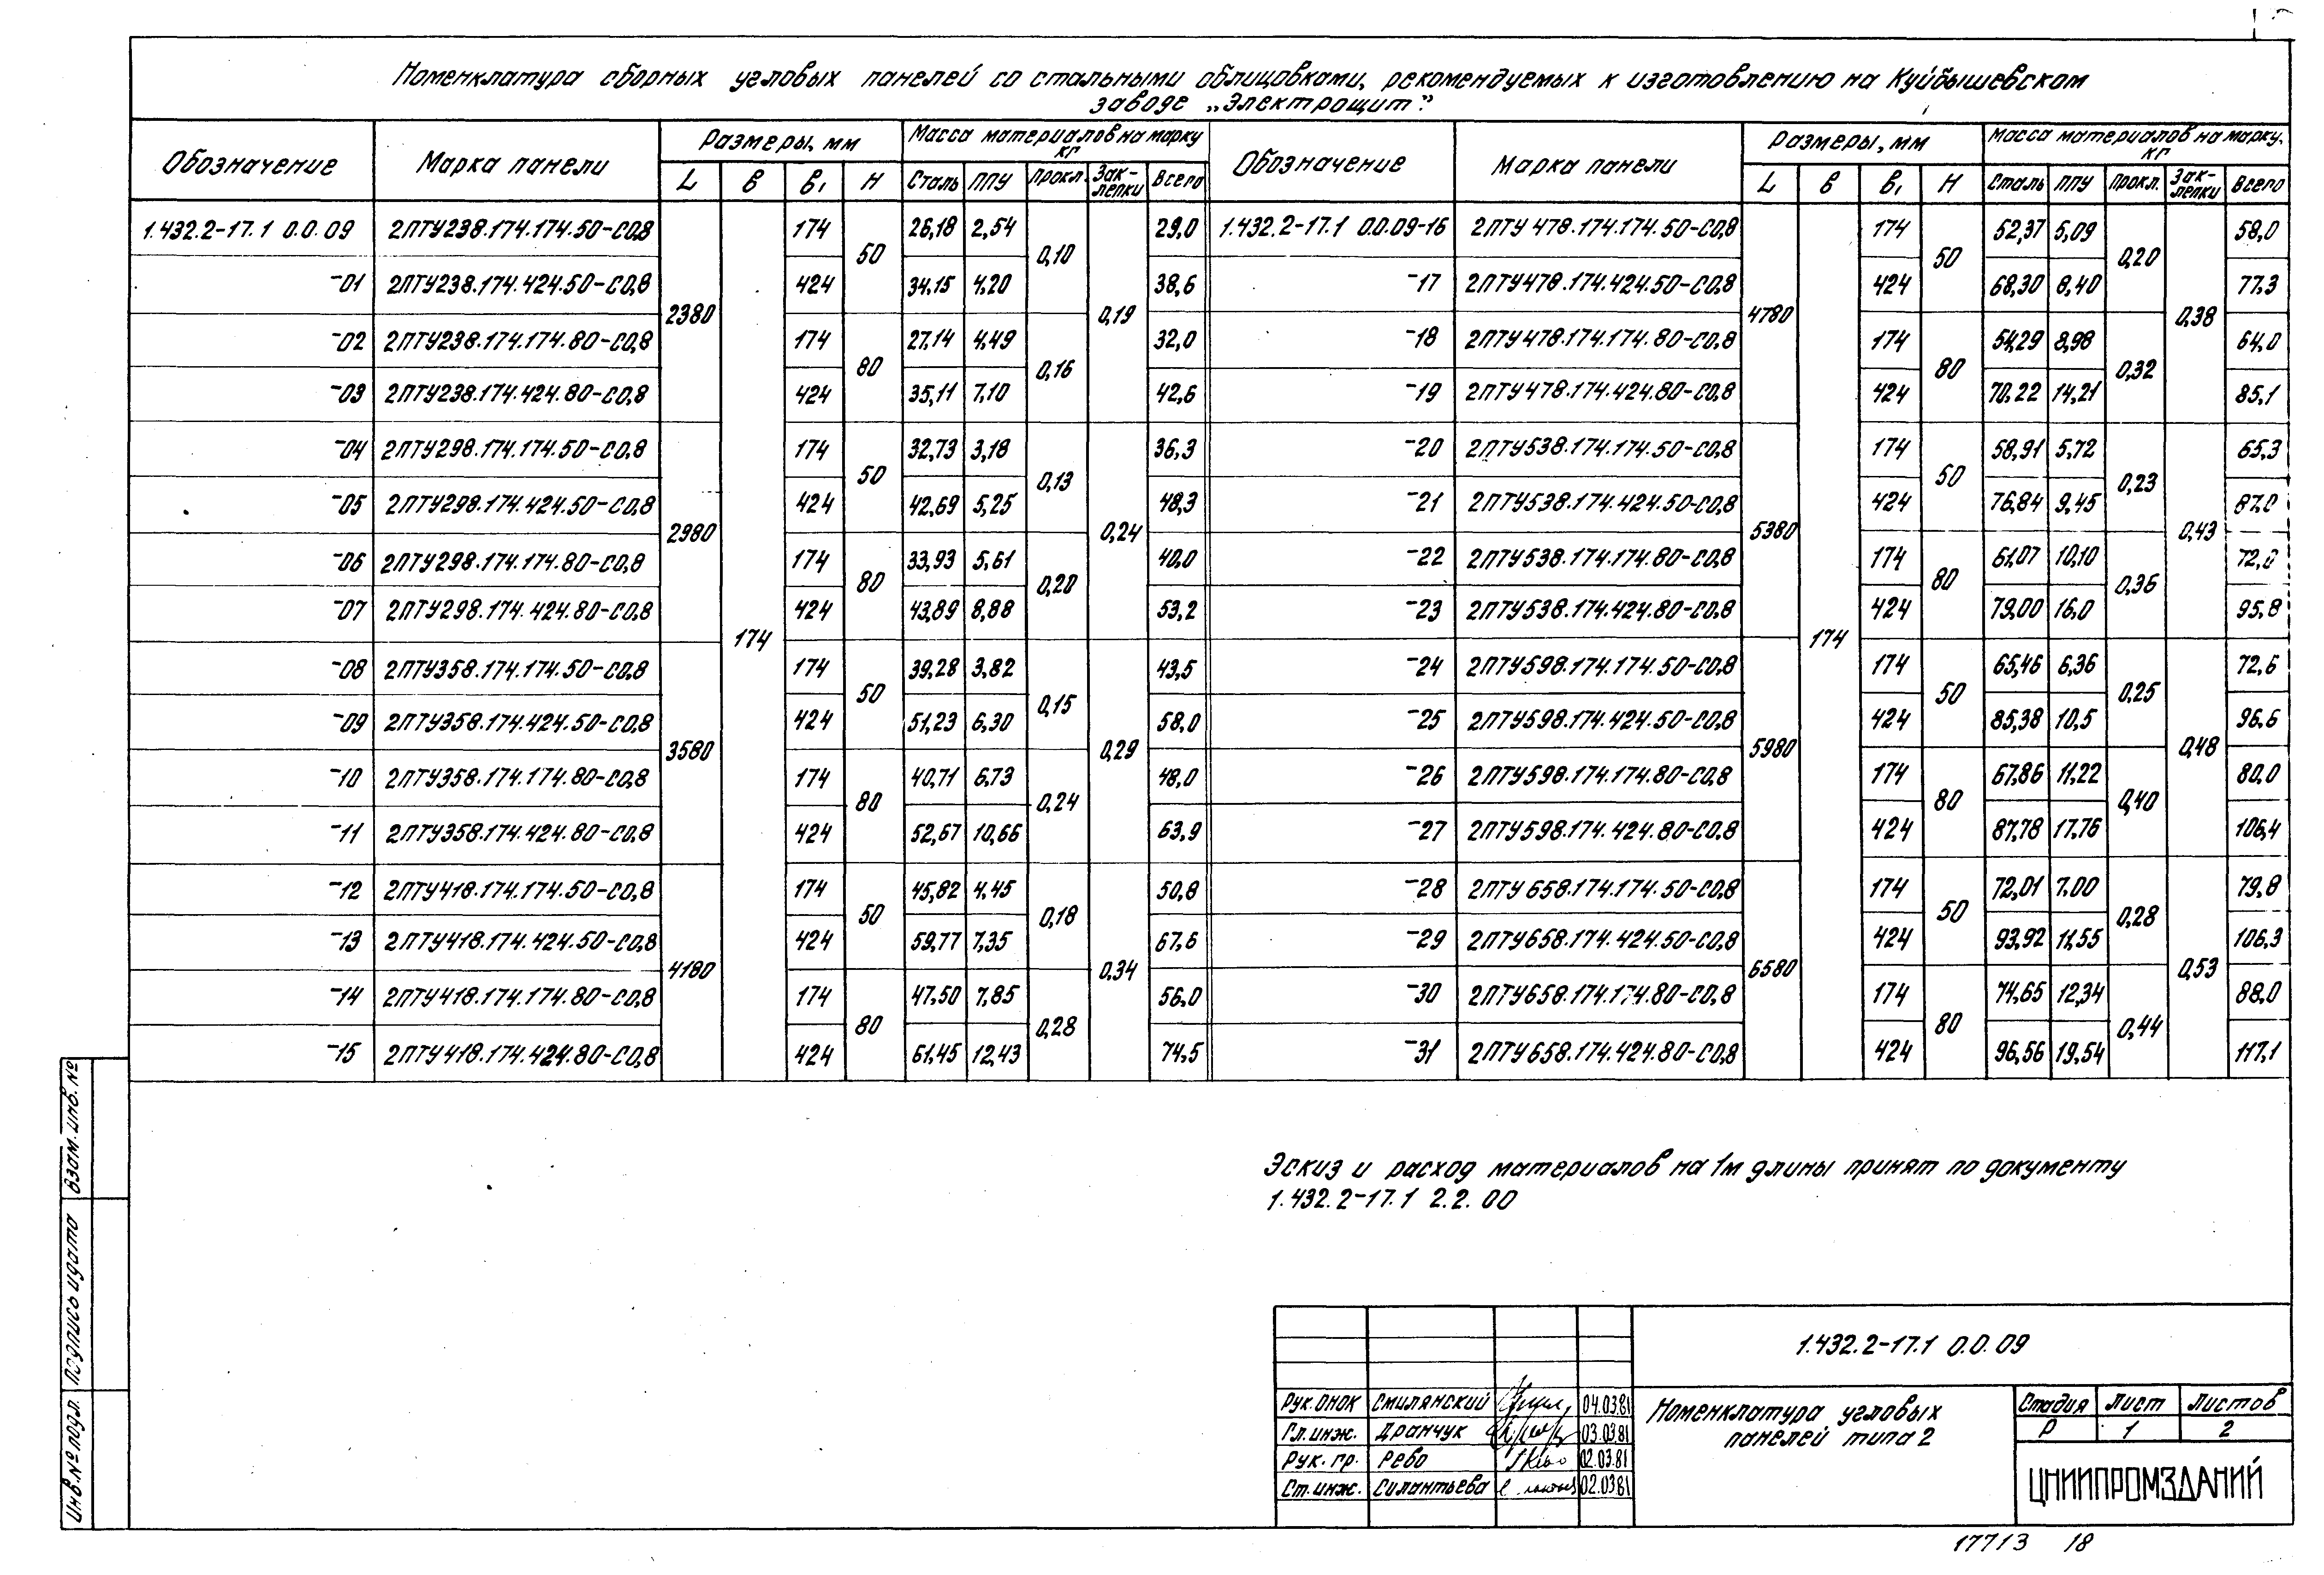 Номенклатура сборных угловых панелей со стальными облицовками, рекомендуемых к изготовлению на Куйбышевском
заводе „Электрощит".
Обозначение Марка панели Размеры, мм Масса материалов на марку кг Обозначение Марка панели Размеры, мм Масса материалов на марку, кг
L в в₁ Н Сталь ППУ Прокл. Заклепки Всего L в в₁ Н Сталь ППУ Прокл. Заклепки Всего
1.432.2-17.1 0.0.09 2ПТУ238.174.174.50-С0,8 2380 174 174 50 26,18 2,54 0,10 0,19 29,0 1.432.2-17.1 0.0.09-16 2ПТУ478.174.174.50-С0,8 4780 174 174 50 52,37 5,09 0,20 0,38 58,0
-01 2ПТУ238.174.424.50-С0,8 424 34,15 4,20 38,6 -17 2ПТУ478.174.424.50-С0,8 424 68,30 8,40 77,3
-02 2ПТУ238.174.174.80-С0,8 174 80 27,14 4,49 0,16 32,0 -18 2ПТУ478.174.174.80-С0,8 174 80 54,29 8,98 0,32 64,0
-03 2ПТУ238.174.424.80-С0,8 424 35,11 7,10 42,6 -19 2ПТУ478.174.424.80-С0,8 424 70,22 14,21 85,1
-04 2ПТУ298.174.174.50-С0,8 2980 174 50 32,73 3,18 0,13 0,24 36,3 -20 2ПТУ538.174.174.50-С0,8 5380 174 50 58,91 5,72 0,23 0,43 65,3
-05 2ПТУ298.174.424.50-С0,8 424 42,69 5,25 48,3 -21 2ПТУ538.174.424.50-С0,8 424 76,84 9,45 87,0
-06 2ПТУ298.174.174.80-С0,8 174 80 33,93 5,61 0,20 40,0 -22 2ПТУ538.174.174.80-С0,8 174 80 61,07 10,10 0,36 72,0
-07 2ПТУ298.174.424.80-С0,8 424 43,89 8,88 53,2 -23 2ПТУ538.174.424.80-С0,8 424 79,00 16,0 95,8
-08 2ПТУ358.174.174.50-С0,8 3580 174 50 39,28 3,82 0,15 0,29 43,5 -24 2ПТУ598.174.174.50-С0,8 5980 174 50 65,46 6,36 0,25 0,48 72,6
-09 2ПТУ358.174.424.50-С0,8 424 51,23 6,30 58,0 -25 2ПТУ598.174.424.50-С0,8 424 85,38 10,5 96,6
-10 2ПТУ358.174.174.80-С0,8 174 80 40,71 6,73 0,24 48,0 -26 2ПТУ598.174.174.80-С0,8 174 80 67,86 11,22 0,40 80,0
-11 2ПТУ358.174.424.80-С0,8 424 52,67 10,66 63,9 -27 2ПТУ598.174.424.80-С0,8 424 87,78 17,76 106,4
-12 2ПТУ418.174.174.50-С0,8 4180 174 50 45,82 4,45 0,18 0,34 50,8 -28 2ПТУ658.174.174.50-С0,8 6580 174 50 72,01 7.00 0,28 0,53 79,8
-13 2ПТУ418.174.424.50-С0,8 424 59,77 7,35 67,6 -29 2ПТУ658.174.424.50-С0,8 424 93,92 11,55 106,3
-14 2ПТУ418.174.174.80-С0,8 174 80 47,50 7,85 0,28 56,0 -30 2ПТУ658.174.174.80-С0,8 174 80 74,65 12,34 0,44 88,0
-15 2ПТУ418.174.424.80-С0,8 424 61,45 12,43 74,5 -31 2ПТУ658.174.424.80-С0,8 424 96,56 19,54 117,1
Эскиз и расход материалов на 1м длины принят по документу
1.432.2-17.1 2.2.00
Инв.№ подл. Подпись и дата Взам.инв.№
1.432.2-17.1 0.0.09
Рук.ОНОК Смилянский 04.03.81
Гл.инж. Дранчук 03.03.81
Рук.гр. Рево 02.03.81
Ст.инж. Силантьева 02.03.81
Номенклатура угловых
панелей типа 2
Стадия Лист Листов
Р 1 2
ЦНИИПРОМЗДАНИЙ
17713 18